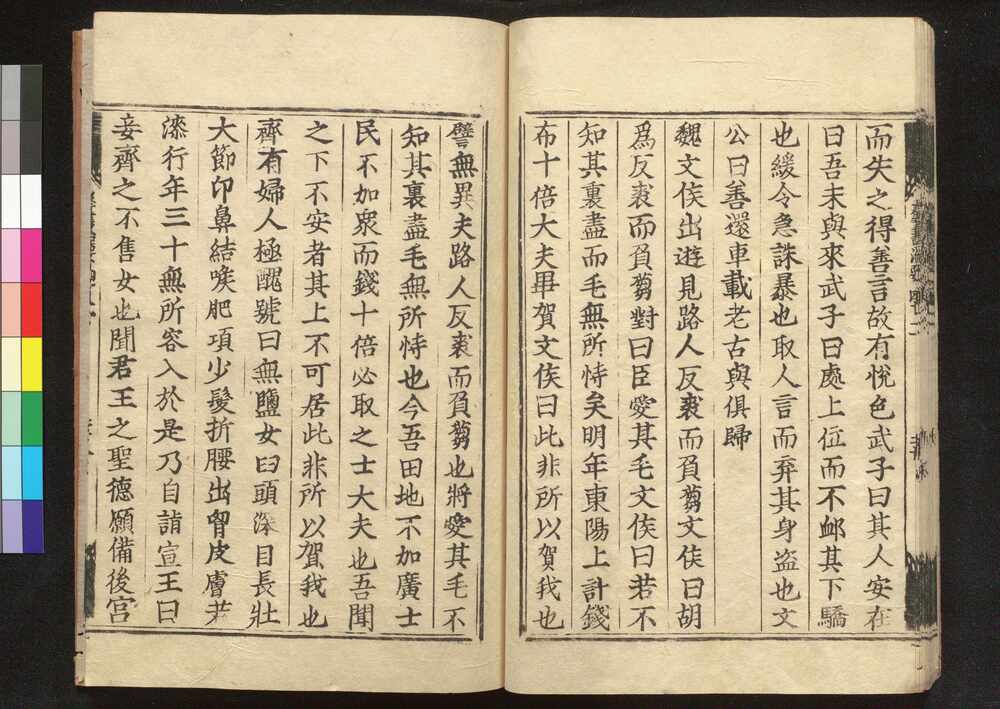 而失之得善言故有悅色武子曰其人安在
曰吾未與來武子曰處上位而不卹其下驕
也緩令急誅暴也取人言而弃其身盗也文
公曰善還車載老古與俱歸
魏文侯出遊見路人反裘而負蒭文侯曰胡
爲反裘而負蒭對曰臣愛其毛文侯曰若不
知其裏盡而毛無所恃矣明年東陽上計錢
布十倍大夫畢賀文侯曰此非所以賀我也
譬無異夫路人反裘而負蒭也將愛其毛不
知其裏盡毛無所恃也今吾田地不加廣士
民不加衆而錢十倍必取之士大夫也吾聞
之下不安者其上不可居此非所以賀我也
齊有婦人極醜號曰無鹽女臼頭深目長壯
大節卬鼻結喉肥項少髮折腰出胷皮膚若
漆行年三十無所容入於是乃自詣宣王曰
妾齊之不售女也聞君王之聖德願備後宮